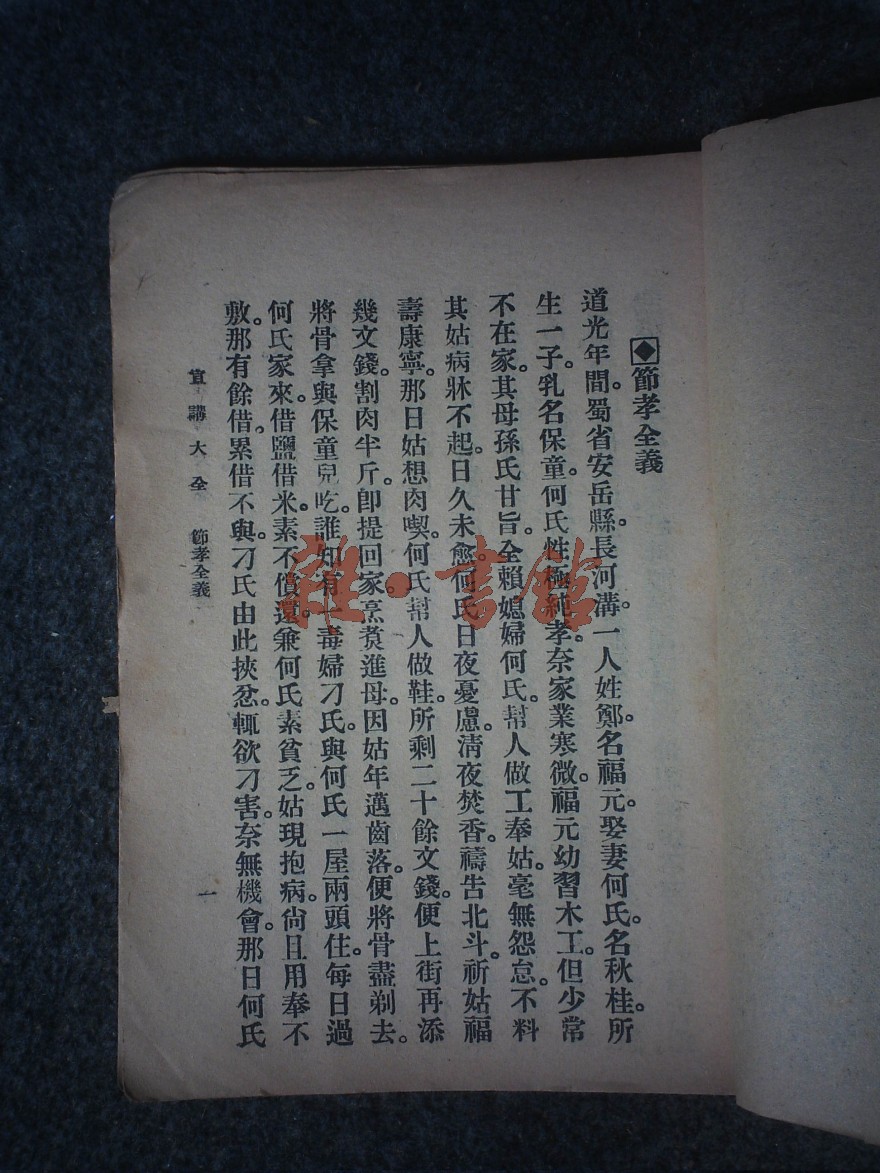 節孝全義
道光年間。蜀省安岳縣。長河溝。一人姓鄭。名福元。娶妻何氏。名秋桂。所
生一子。乳名保童。何氏性極純孝。奈家業寒微。福元幼習木工。但少常
不在家。其母孫氏甘旨。全賴媳婦何氏。幫人做工奉姑。毫無怨怠。不料
其姑病牀不起。日久未愈。何氏日夜憂慮。清夜焚香。禱告北斗。祈姑福
壽康寧。那日姑想肉喫。何氏幫人做鞋。所剩二十餘文錢。便上街再添
幾文錢。割肉半斤。卽提回家。烹煑進母。因姑年邁齒落。便將骨盡剃去。
將骨拿與保童兒吃。誰知有一毒婦刁氏。與何氏一屋兩頭住。每日過
何氏家來。借鹽借米。素不償還。兼何氏素貧乏。姑現抱病。尙且用奉不
敷。那有餘借。累借不與。刁氏由此挾忿。輒欲刁害。奈無機會。那日何氏
宣講大全 節孝全義 一
雜·書館